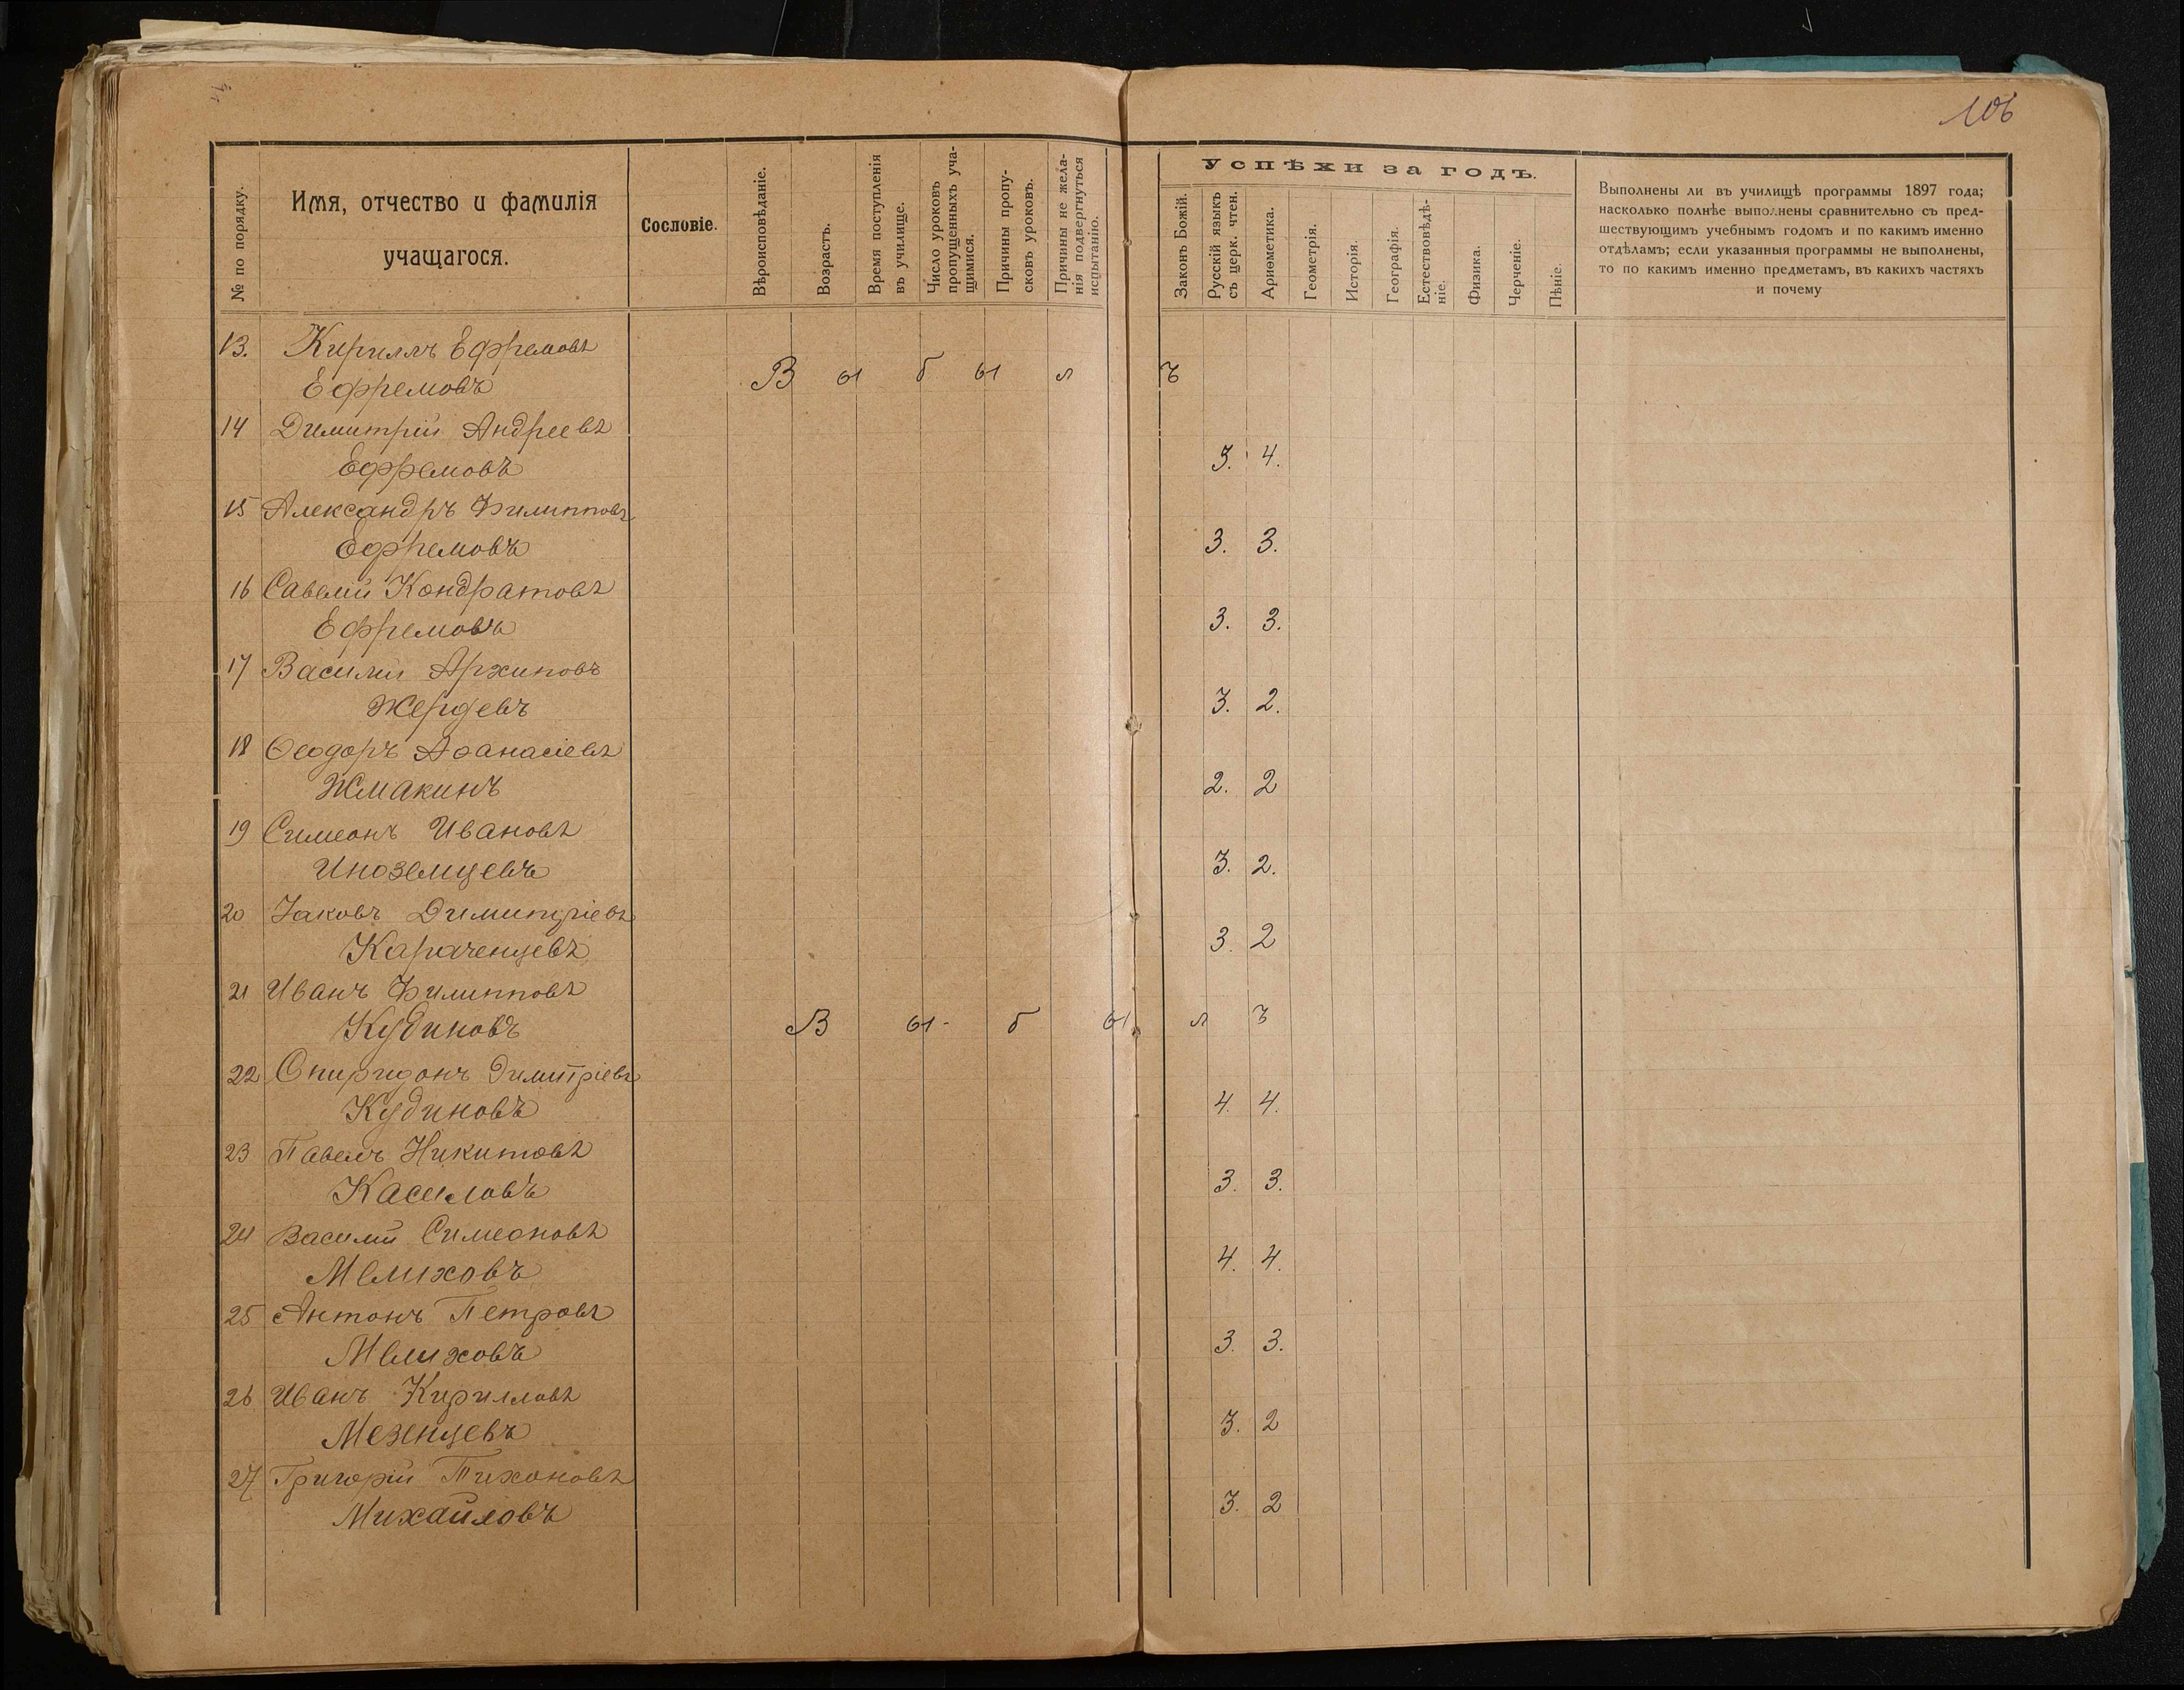 106
№ по порядку.
Имя, отчество и фамилія
учащагося.
Сословіе.
Вѣроисповѣданіе.
Возрастъ.
Время поступленія
въ училище.
Число уроковъ
пропущенныхъ уча-
щимися.
Причины пропу-
сковъ уроковъ.
Причины не жела-
нія подвергнуться
испытанію.
Успѣхи за годъ.
Законъ Божій.
Русскій языкъ
съ церк. чтен.
Ариѳметика.
Геометрія.
Исторія.
Географія.
Естествовѣдѣ-
ніе.
Физика.
Черченіе.
Пѣніе.
Выполнены ли въ училищѣ программы 1897 года;
насколько полнѣе выполнены сравнительно съ пред-
шествующимъ учебнымъ годомъ и по какимъ именно
отдѣламъ; если указанныя программы не выполнены,
то по какимъ именно предметамъ, въ какихъ частяхъ
и почему
13. Кириллъ Ефремовъ
Ефремовъ В ы б ы л ъ
14 Димитрій Андреевъ
Ефремовъ 3. 4.
15 Александръ Филипповъ
Ефремовъ 3. 3.
16 Савелій Кондратовъ
Ефремовъ 3. 3.
17 Василій Архиповъ
Жердевъ 3. 2.
18 Ѳеодоръ Аѳанасіевъ
Жмакинъ 2. 2
19 Симеонъ Ивановъ
Иноземцевъ 3. 2.
20 Іаковъ Димитріевъ
Караченцевъ 3. 2
21 Иванъ Филипповъ
Кудиновъ В ы - б ы л ъ
22 Спиридонъ Димитріевъ
Кудиновъ 4. 4.
23 Павелъ Никитовъ
Касиловъ 3. 3.
24 Василій Симеоновъ
Мелиховъ 4. 4.
25 Антонъ Петровъ
Мелиховъ 3. 3.
26 Иванъ Кирилловъ
Мезенцевъ 3. 2
27 Григорій Тихоновъ
Михайловъ 3. 2